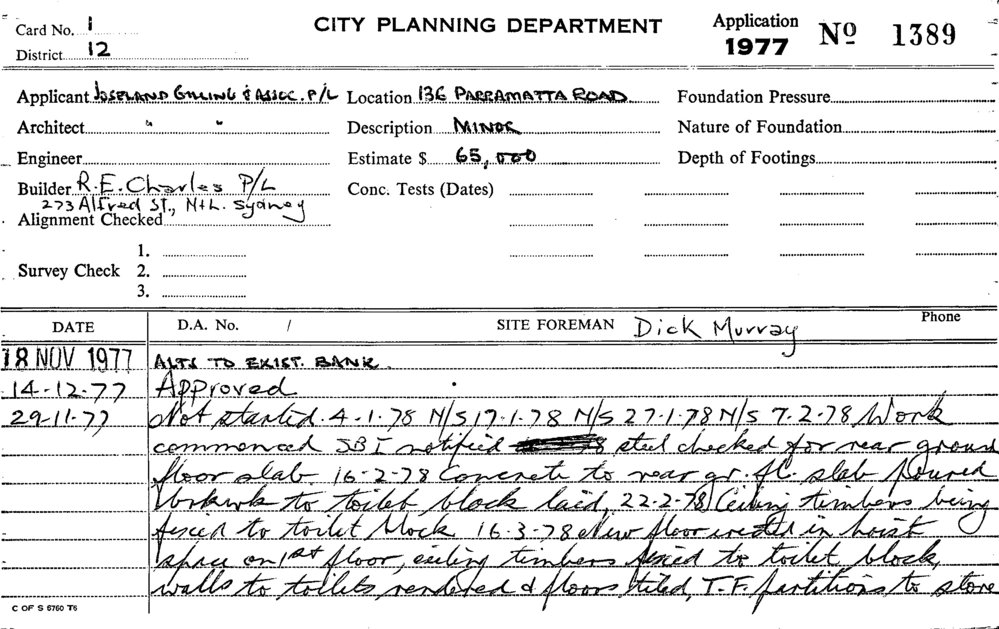 Card No. 1
CITY PLANNING DEPARTMENT
Application
1977 Nº 1389
District 12
Applicant JOSELAND GILLING & ASSOC. P/L Location 136 PARRAMATTA ROAD Foundation Pressure
Architect " " Description MINOR Nature of Foundation
Engineer Estimate $ 65,000 Depth of Footings
Builder R.E. Charles P/L Conc. Tests (Dates)
273 Alfred St., Nth. Sydney
Alignment Checked
1.
Survey Check 2.
3.
DATE D.A. No. / SITE FOREMAN Dick Murray Phone
18 NOV 1977 ALTS TO EXIST. BANK.
14-12-77 Approved
29-11-77 Not started. 4-1-78 N/S 17-1-78 N/S 27-1-78 N/S 7-2-78 Work
commenced SBI notified steel checked for rear ground
floor slab. 16-2-78 Concrete to rear gr. fl. slab poured
brkwk to toilet block laid, 22-2-78 Ceiling timbers being
fixed to toilet block 16-3-78 New floor in hoist
space on 1st floor, ceiling timbers fixed to toilet block,
walls to toilets rendered & floors tiled, T.F. partitions to store
C OF S 6760 T6